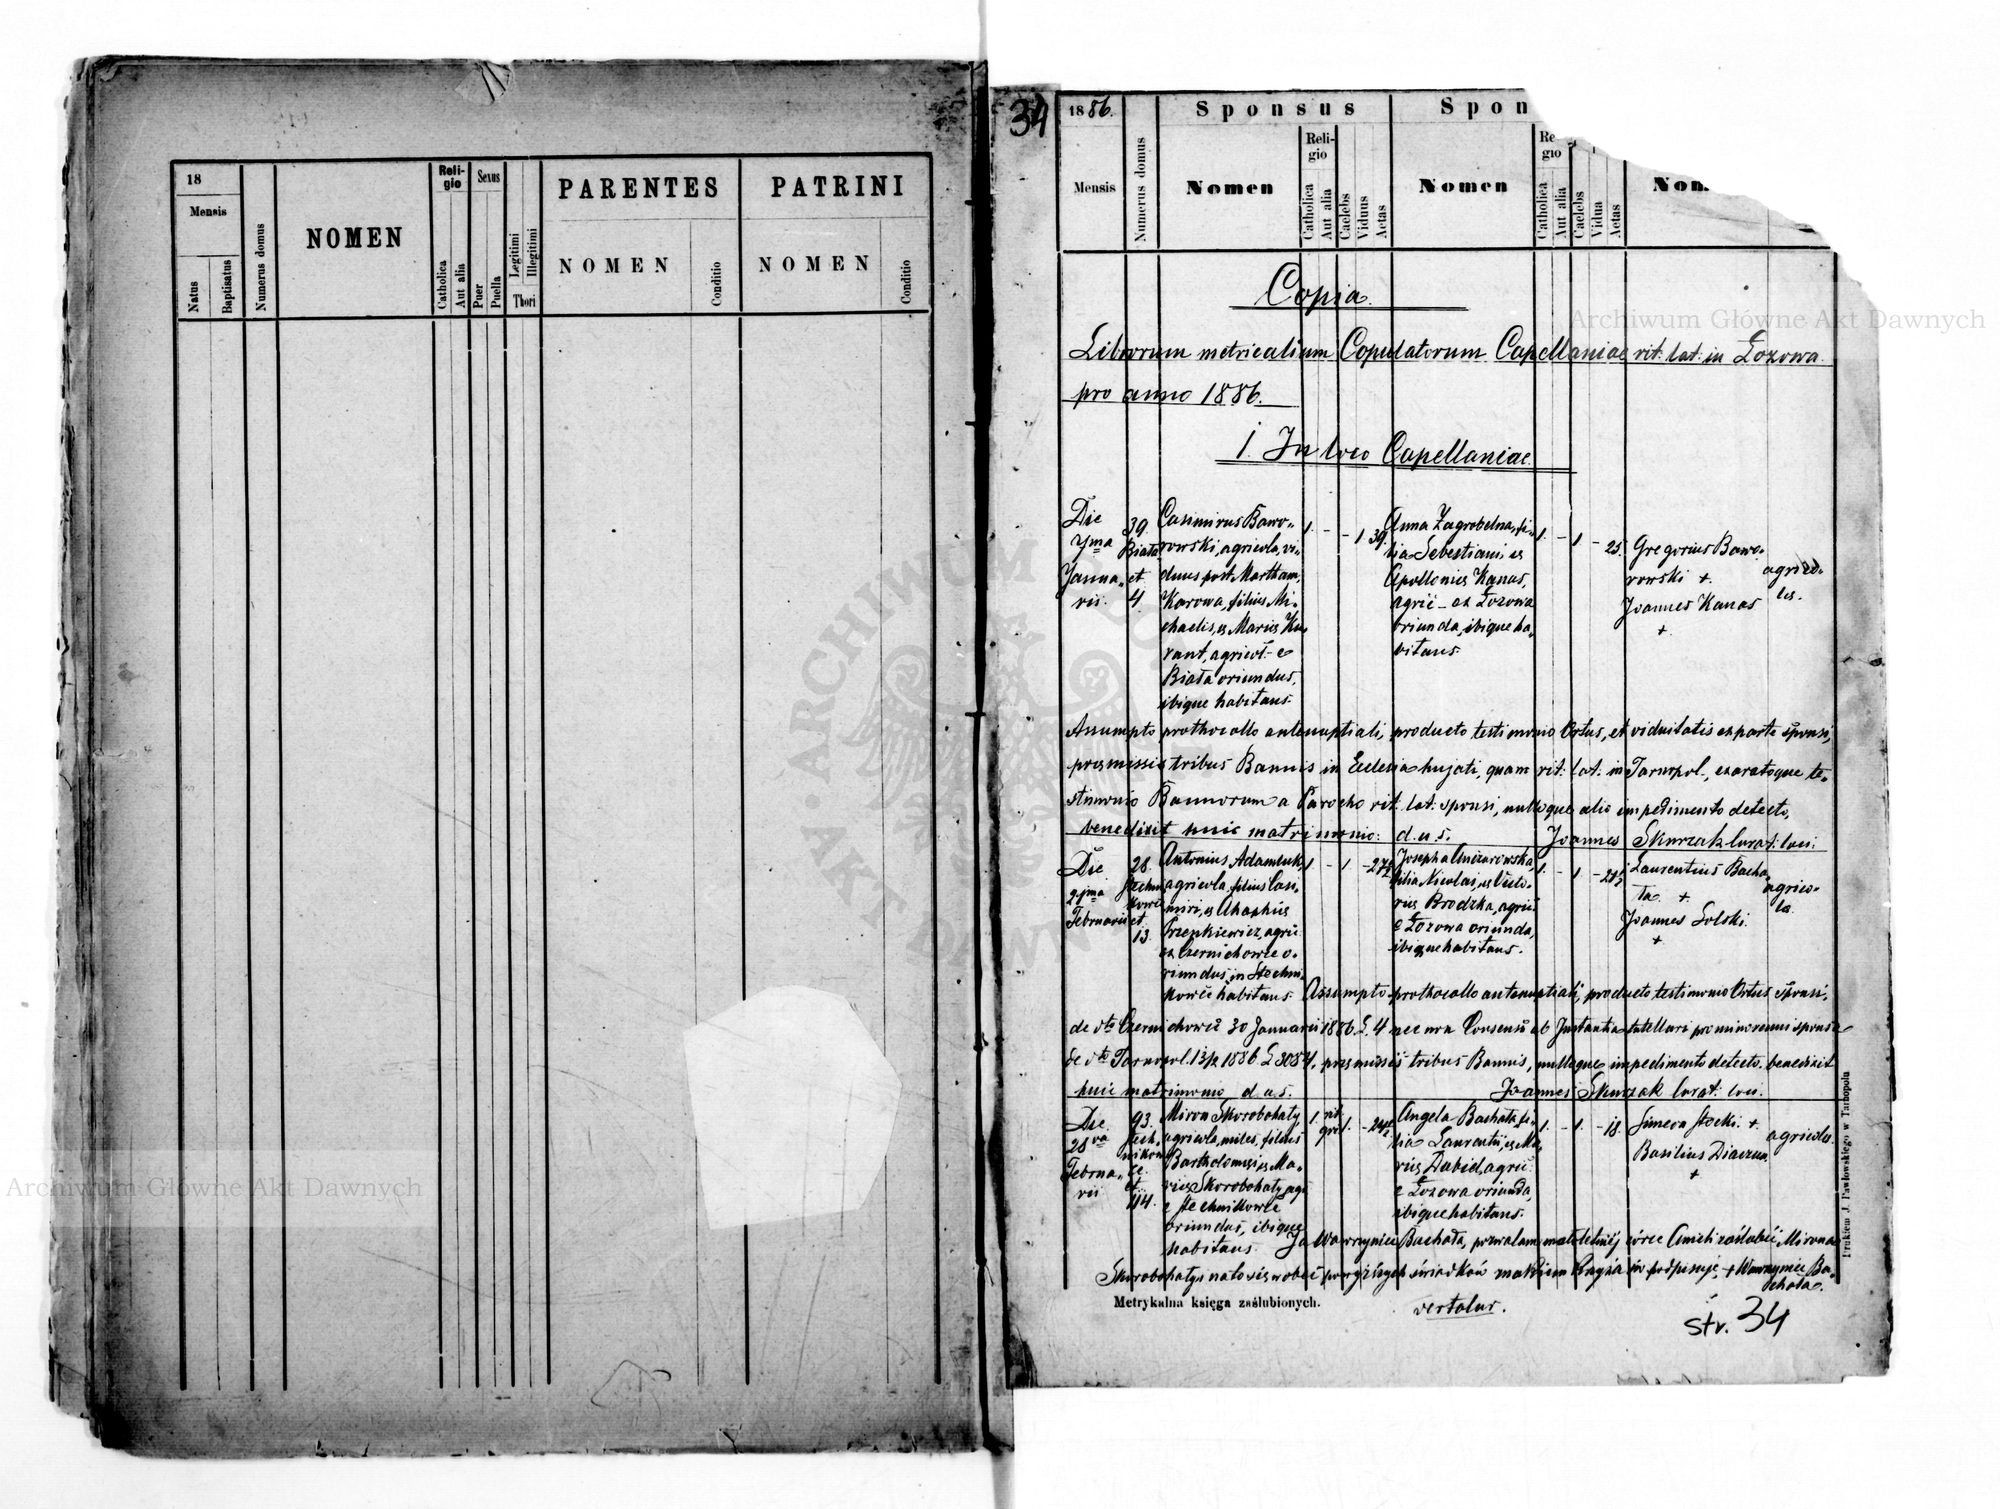 18
Mensis
Natus
Baptisatus
Numerus domus
NOMEN
Religio
Catholica
Aut alia
Sexus
Puer
Puella
Legitimi
Illegitimi
Thori
PARENTES
NOMEN
Conditio
PATRINI
NOMEN
Conditio
34
1886.
Mensis
Numerus domus
Sponsus
Nomen
Religio
Catholica
Aut alia
Caelebs
Viduus
Aetas
Spon
Nomen
Re
gio
Catholica
Aut alia
Caelebs
Vidua
Aetas
Nom
Copia.
Librorum metricalium Copulatorum Capellaniae rit. lat. in Łozowa
pro anno 1886.
1. In loco Capellaniae.
Die
7ma
Janua„
rii.
39.
Biała
et
4.
Casimirus Bawo„
rowski, agricola, vi„
duus post Martham,
Karowa, filius Mi„
chaelis, et Mariae Ku„
rant, agricol. e
Biała oriundus,
ibique habitans.
1. - - 1 39.
Anna Zagrobelna, fi„
lia Sebestiani et
Apolloniae Kanas,
agric - ex Łozowa
oriunda, ibique ha„
bitans.
1. - 1 - 25.
Gregorius Bawo„
rowski +.
Joannes Kanas
+
agrico„
lae.
Assumpto prothocollo antenuptiali, producto testimonio Ortus, et viduitatis ex parte sponsi,
praemissis tribus Bannis in Ecclesia hujati, quam rit. lat. in Tarnopol., exaratoque te„
stimonio Bannorum a Parocho rit. lat. sponsi, nulloque alio impedimento detecto,
benedixit huic matrimonio. d. u. s. Joannes Skurzak Curat. loci.
Die
21ma
Februarii
28.
et
13.
Antonius Adamluk,
agricola, filius Casi„
miri, et
agric.
ex Czernichowce o„
riundus, in Stechni„
kowce habitans.
1 - 1 -
Josepha
filia Nicolai, et Victo„
riae Brodzka, agric.
e Łozowa oriunda,
ibique habitans.
1. - 1 -
Laurentius Bacha„
ta +
Joannes Solski.
+
agrico„
lae.
Assumpto prothocollo antenuptiali, producto testimonio Ortus sponsi,
de dto Czernichowce 30 Januarii 1886. L. 4 nec non Consensu ab Instantia tutellari pro minorenni sponsa
de dto Tarnopol. 13/2 1886. L 3084, praemissis tribus Bannis, nulloque impedimento detecto, benedixit
huic matrimonio, d. u. s. Joannes Skurzak Curat. loci.
Die
28va
Februa„
rii
93.
et
114.
Miron Skorobohaty,
agricola, miles, filius
Bartholomaei, et Ma„
riae Skorobohaty, agr.
e Stechnikowce
oriundus, ibique
habitans.
1. rit.
gr. 1. -
Angela Bachata, fi„
lia Laurentii, et Ma„
riae Dabid, agric.
e Łozowa oriunda,
ibique habitans.
1. - 1. - 18.
Simeon Stocki. +
Basilius Diaczun.
+
agricolae.
Ja Wawrzyniec Bachata, pozwalam małoletniej córce Anieli zaślubić Mirona
Skorobohatego na to się wobec powyższych świadków znakiem Krzyża św podpisuję, + Wawrzyniec Ba„
chata.
Metrykalna księga zaślubionych.
vertatur.
str. 34
Drukiem J. Pawłowskiego w Tarnopolu
Archiwum Główne Akt Dawnych
Archiwum Główne Akt Dawnych